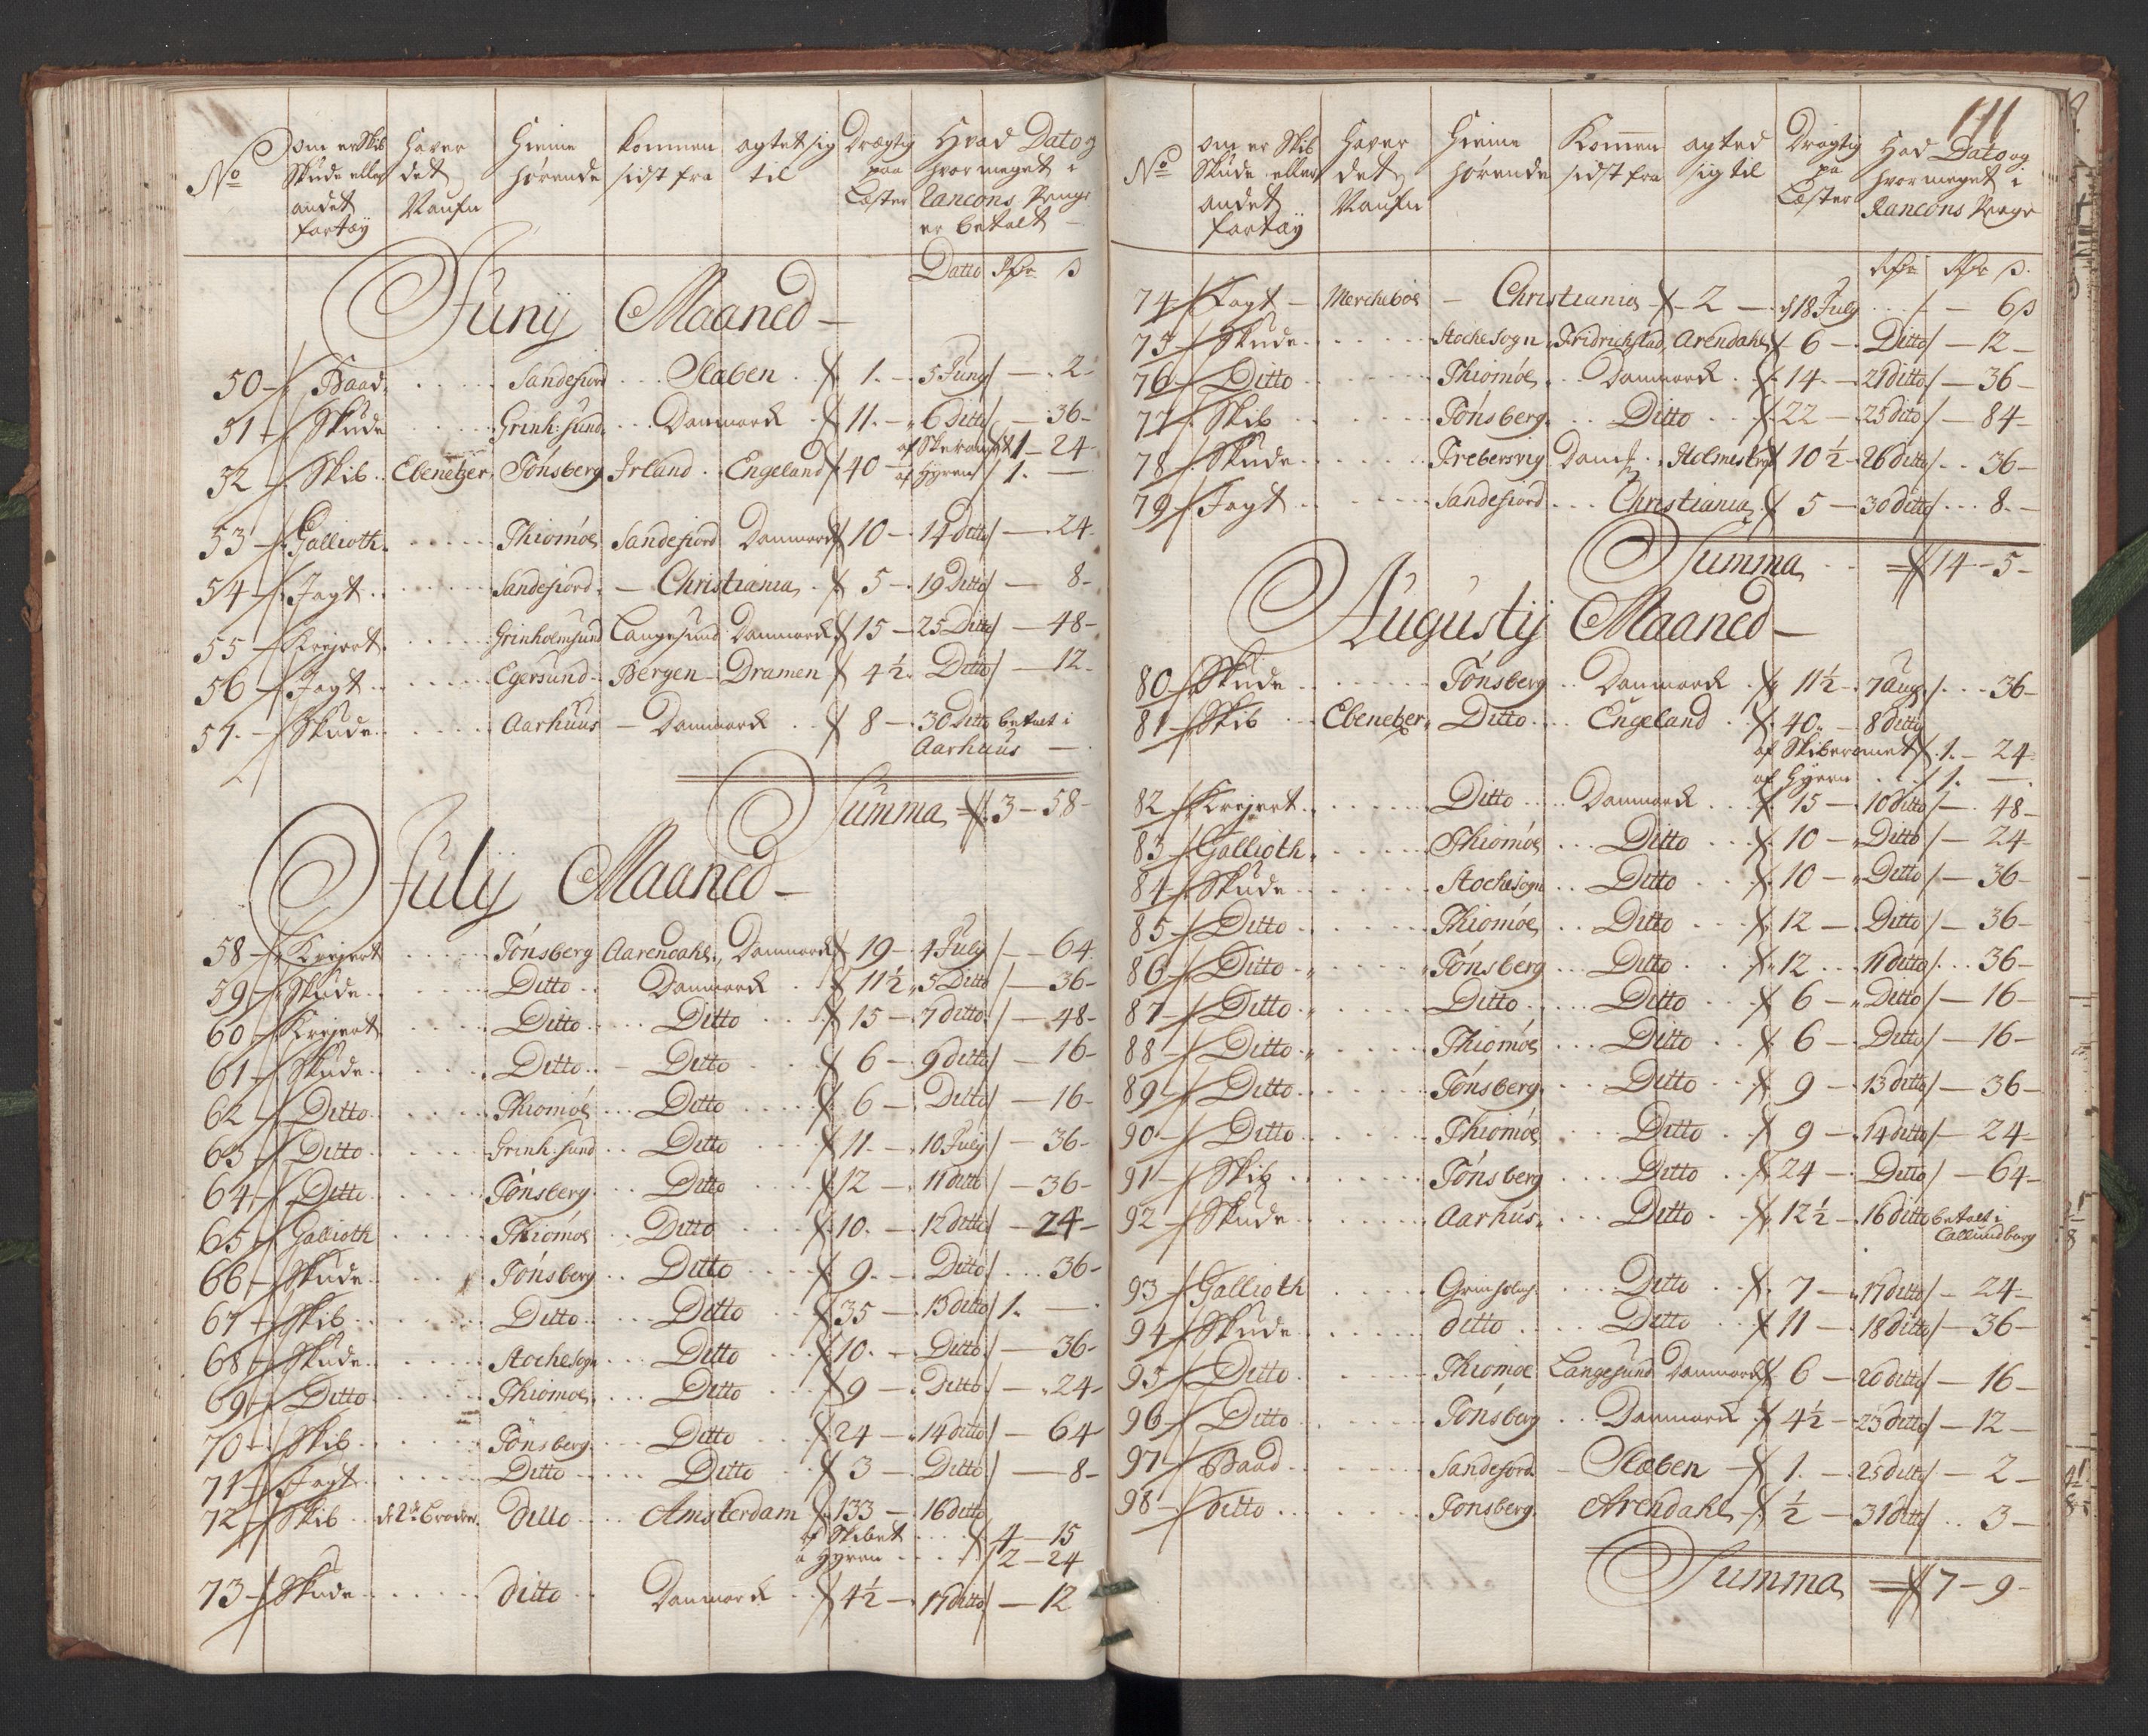 No | om er Skib Skude eller andet fartøy | haver det Naufn | Hieme hørende | kommen sidst fra | agtet sig til | Drægtig paa Læster | Hvad Dato og hvor meget i Rancons Penge er betalt
Datto Rdr ß
Junij Maaned
50 Baad Sandefiord Staben 1 5 Junÿ 2
51 Skude Grinh: sund Danmarck 11 6 Ditto 36
52 Skib Ebenetzer Tønsberg Irland Engeland 40 af Skeromet 1 24
af Hyren 1
53 Gallioth Thiømøe Sandefiord Danmarck 10 14 Ditto 24
54 Jagt Sandefiord Christiania 5 19 Ditto 8
55 Kreyert Grinholmsund Langesund Danmarck 15 25 Ditto 48
56 Jagt Egersund Bergen Dramen 4½ Ditto 12
57 Skude Aarhuus Danmarck 8 30 Ditto betalt i
Aarhuus
Summa 3 58
Julij Maaned
58 Kreyert Tønsberg Aarendahl Danmarck 19 4 July 64
59 Skude Ditto Danmarck 11½ 5 Ditto 36
60 Kreyert Ditto Ditto 15 7 ditto 48
61 Skude Ditto Ditto 6 9 ditto 16
62 Ditto Thiomøe Ditto 6 Ditto 16
63 Ditto Grinh: sund Ditto 11 10 July 36
64 Ditto Tønsberg Ditto 12 11 ditto 36
65 Gallioth Thiømøe Ditto 10 12 ditto 24
66 Skude Tønsberg Ditto 9 Ditto 36
67 Skib Ditto Ditto 35 13 ditto 1
68 Skude Stoche sogn Ditto 10 Ditto 36
69 Ditto Thiømøe Ditto 9 Ditto 24
70 Skib Tønsberg Ditto 24 14 ditto 64
71 Jagt Ditto Ditto 3 Ditto 8
72 Skib de 2de Brødre Ditto Amsterdam 133 16 ditto
af Skibet 4 15
a Hyren 2 24
73 Skude ditto Danmarck 4½ 17 ditto 12
111
No | om er Skib Skude eller andet fartøy | Haver det Naufn | Hieme hørende | Kommen sidst fra | agted sig til | Drægtig pa Læster | Had Dato og hvor meget i Rancons Penge
Rdr Rdr ß
74 Jagt Merchebøe Christiania 2 d 18 July 6ß
75 Skude Stoche Sogn Fridrichstad Arendahl 6 Ditto 12
76 Ditto Thiømøe Danmarck 14 21 ditto 36
77 Skib Tønsberg Ditto 22 25 dito 84
78 Skude Trebersvig Danck Holmestrand 10½ 26 ditto 36
79 Jagt Sandefiord Christiania 5 30 ditto 8
Summa 14 5
Augustij Maaned
80 Skude Tønsberg Danmarck 11½ 7 Aug 36
81 Skib Ebenetzer Ditto Engeland 40 8 ditto
af Skiberomet 1 24
af Hyren 1
82 Kreyert Ditto Danmarck 15 10 ditto 48
83 Gallioth Thiømøe Ditto 10 Ditto 24
84 Skude Stochesogn Ditto 10 Ditto 36
85 Ditto Thiømøe Ditto 12 Ditto 36
86 Ditto Tønsberg Ditto 12 11 ditto 36
87 Ditto Ditto Ditto 6 Ditto 16
88 Ditto Thiømøe Ditto 6 Ditto 16
89 Ditto Tønsberg Ditto 9 13 ditto 36
90 Ditto Thiømøe Ditto 9 14 ditto 24
91 Skib Tønsberg Ditto 24 Ditto 64
92 Skude Aarhus Ditto 12½ 16 ditto betalt i
Callundborg
93 Gallioth Grinholms Ditto 7 17 ditto 24
94 Skude ditto Ditto 11 18 ditto 36
95 Ditto Thiømøe Langesund Danmarck 6 20 ditto 16
96 Ditto Tønsberg Danmarck 4½ 23 ditto 12
97 Baad Sandefiord Staben 1 25 ditto 2
98 ditto Tønsberg Arendahl ½ 31 ditto 3
Summa 7 9